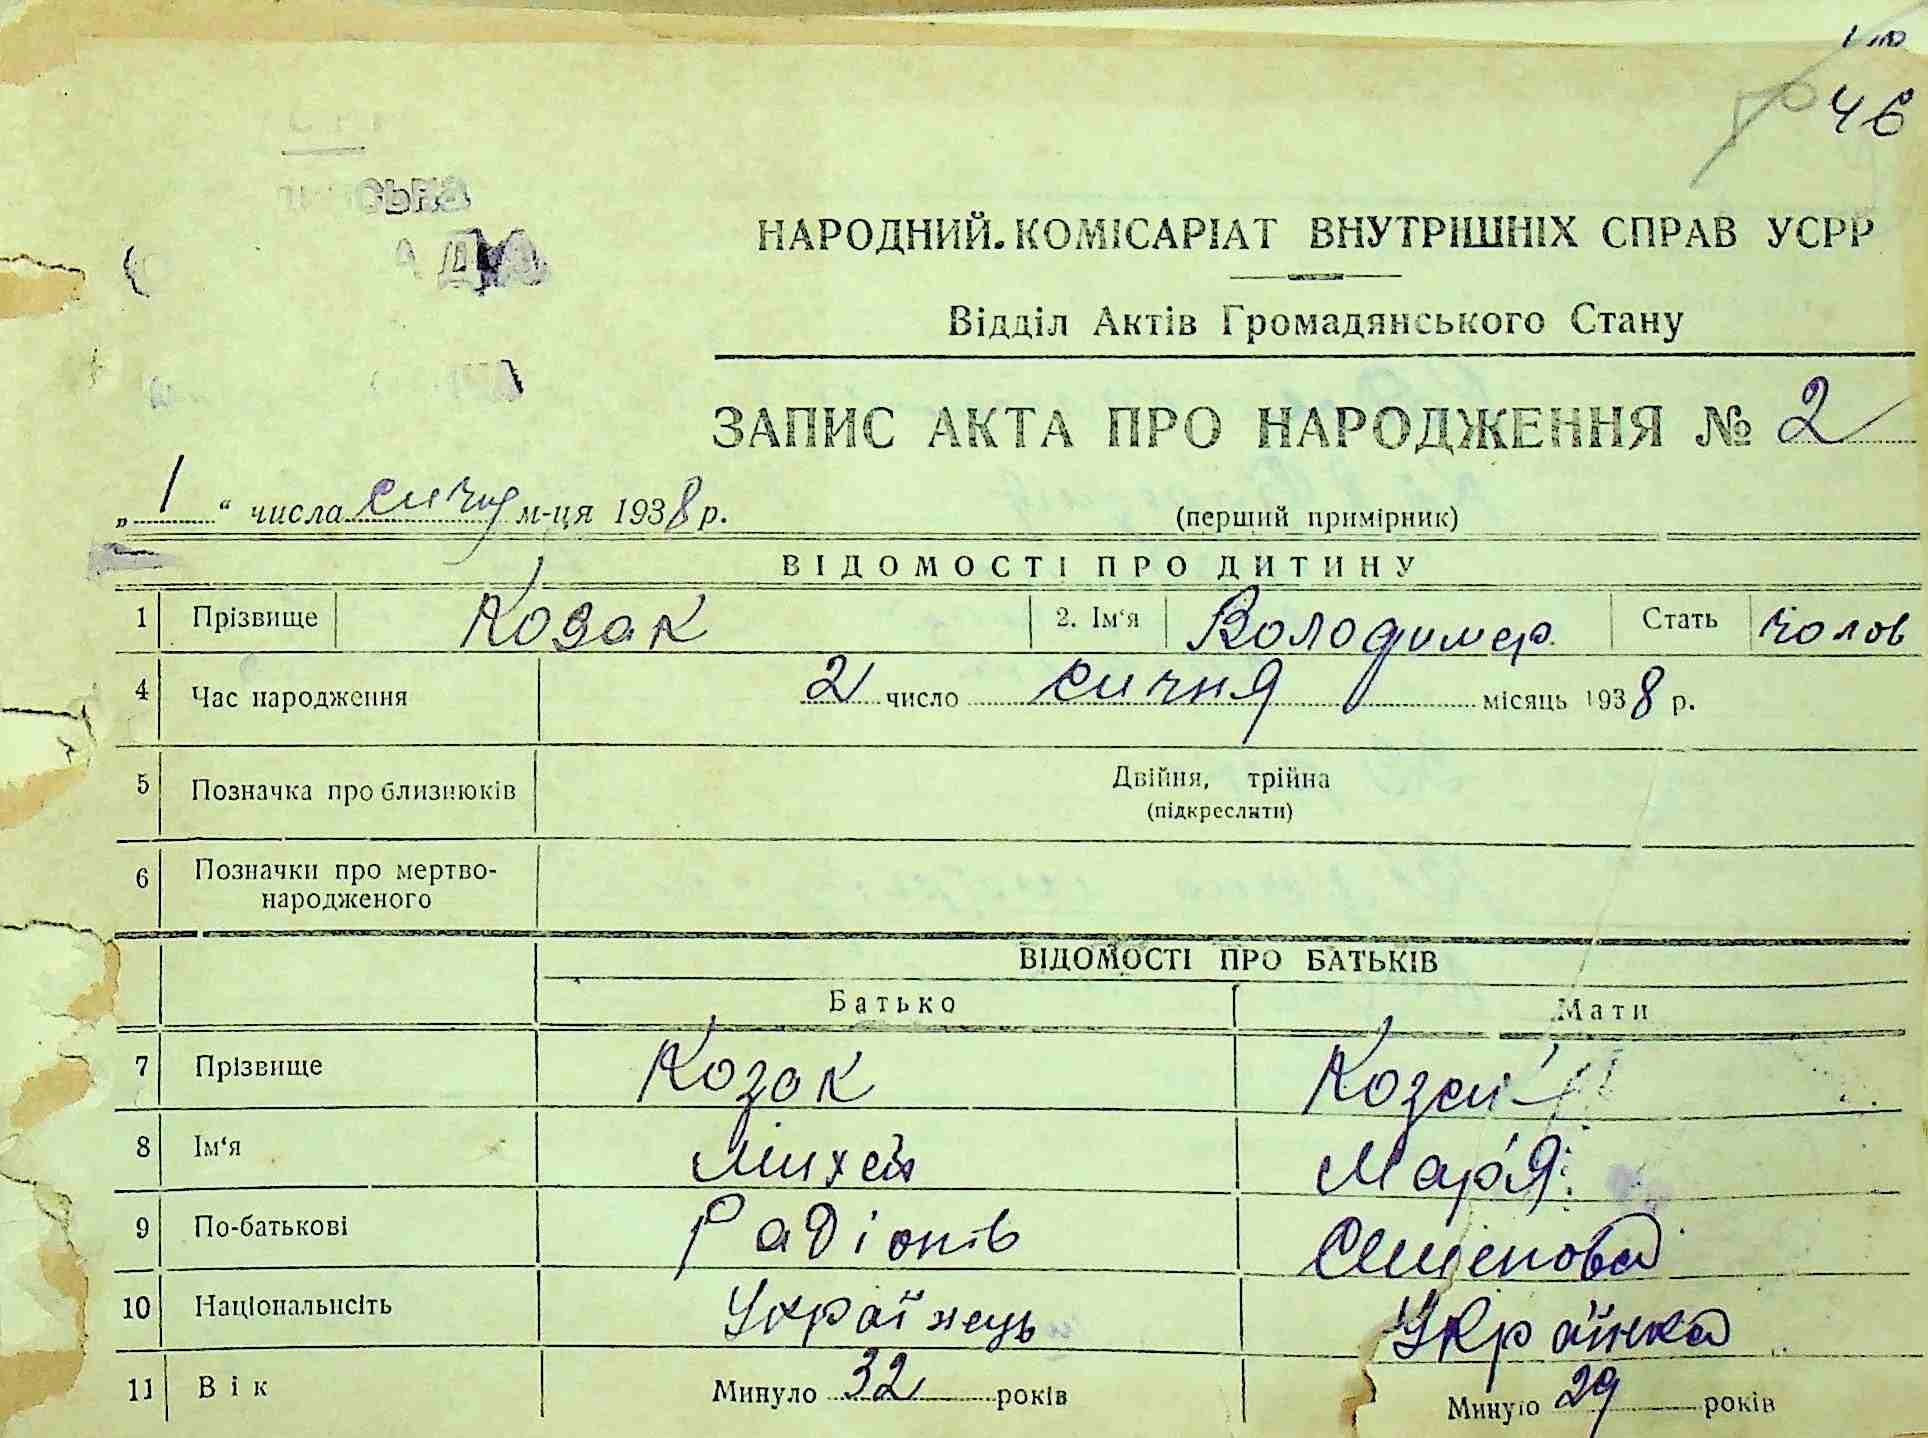 46
СЬКА
НАРОДНИЙ КОМІСАРІАТ ВНУТРІШНІХ СПРАВ УСРР
Відділ Актів Громадянського Стану
ЗАПИС АКТА ПРО НАРОДЖЕННЯ № 2
„ 1 “ числа січня м-ця 1938 р. (перший примірник)
ВІДОМОСТІ ПРО ДИТИНУ
1 Прізвище Козак 2. Ім‘я Володимер Стать чолов
4 Час народження 2 число сичня місяць 1938 р.
5 Позначка про близнюків Двійня, трійна
(підкреслити)
6 Позначки про мертво-
народженого
ВІДОМОСТІ ПРО БАТЬКІВ
Батько Мати
7 Прізвище Козак
8 Ім‘я Михей Мар'я
9 По-батькові Радіонів Семенова
10 Національність Українець Українка
11 Вік Минуло 32 років Минуло 29 років